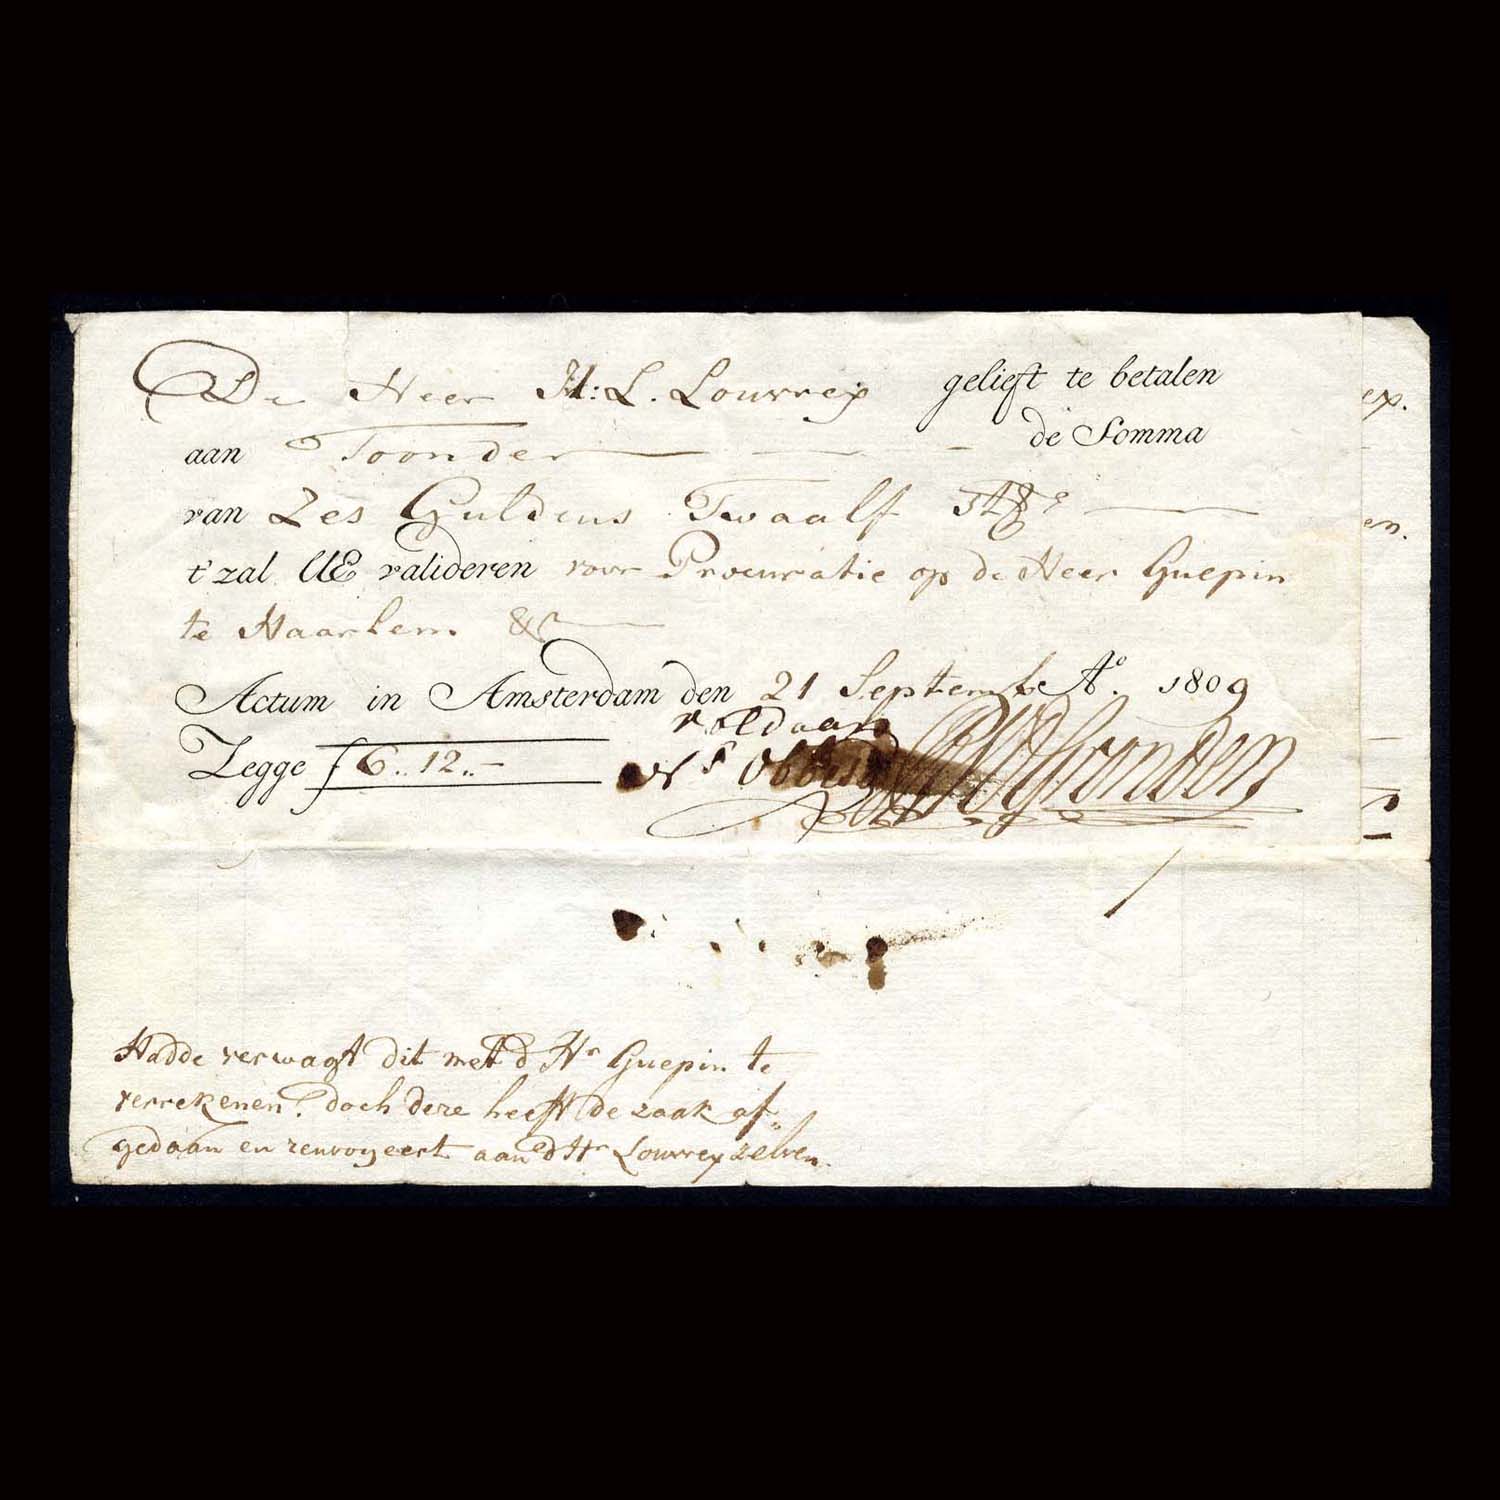 De Heer H: L. Louvrex gelieft te betalen
aan Toonder de Somma
van Zes Guldens Twaalf
t'zal UE valideren voor Procuratie op de Heer Guepin
te Haarlem &c
Actum in Amsterdam den 21 Septemb Aº. 1809
voldaan
Zegge ƒ 6.. 12..-
Hadde verwagt dit met d Hr Guepin te
verrekenen. doch deze heeft de zaak af„
gedaan en renvoyeert aan d Hr Louvrex zelven.
ex.
en.